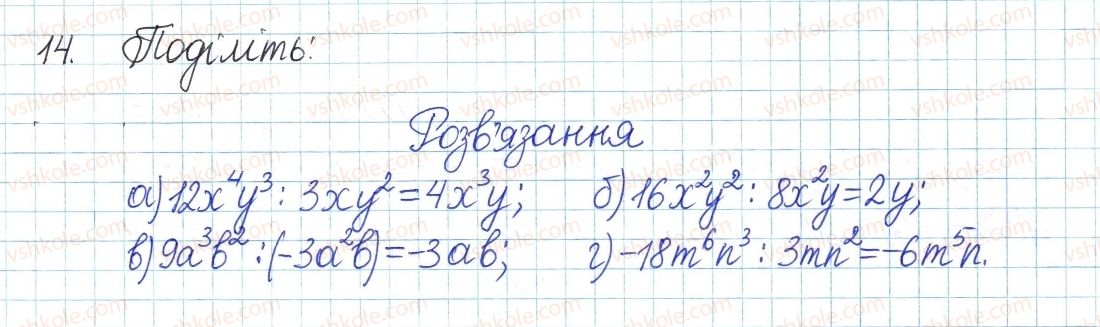 14. Поділіть:
Розв'язання
а) 12x⁴y³ : 3xy² = 4x³y; б) 16x²y² : 8x²y = 2y;
в) 9a³b² : (-3a²b) = -3ab; г) -18m⁶n³ : 3mn² = -6m⁵n.